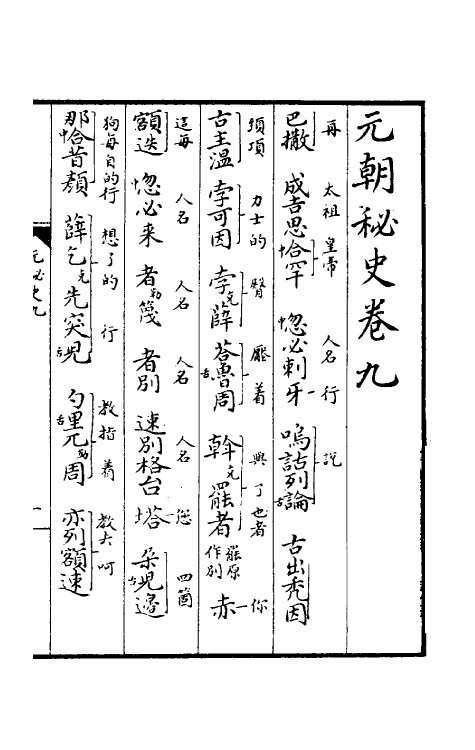 元朝秘史卷九
再 太祖 皇帝 人名 行 說
巴撒 成吉思中合罕 中忽必剌牙 嗚詁舌列論 古出禿因
頸項 力士的 臀 壓着 與了也者 你
古主溫 孛可因 孛克薛 荅舌魯周 斡克罷者 罷原作別 赤
這每 人名 人名 人名 人名 您 四箇
額迭 中忽必来 者勒篾 者別 速別格台 塔 朵舌兒邊
狗每自的行 想了的 行 教指着 教去呵
那中合昔顏 薛乞克先突舌兒 勺舌里兀勒周 亦列額速
元秘史九
一